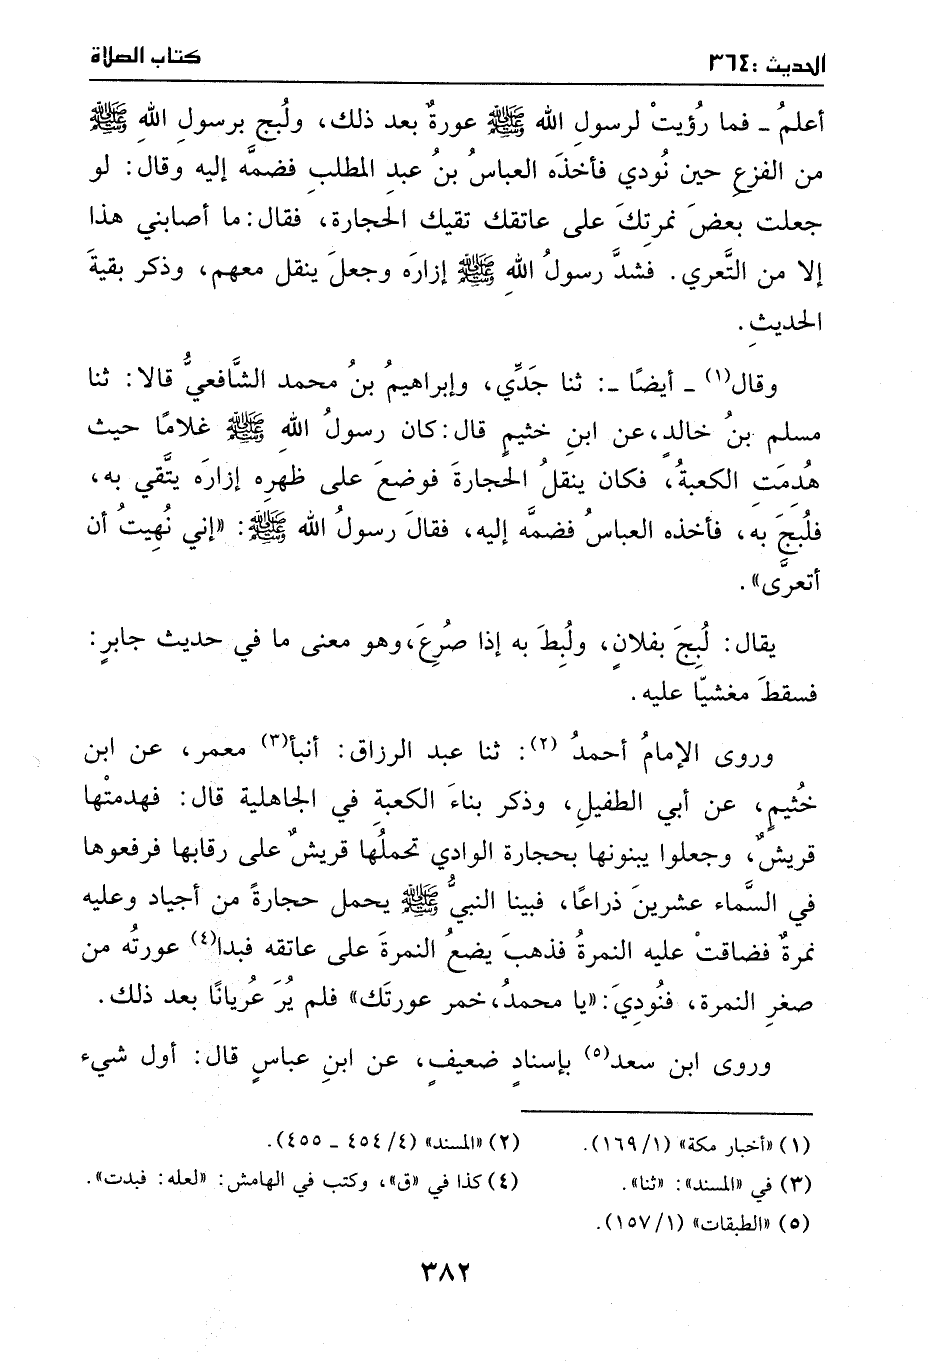 الحديث : ٣٦٤ كتاب الصلاة
أعلمُ ـ فما رؤيتْ لرسولِ الله ﷺ عورةٌ بعد ذلك، ولُبج برسولِ اللهِ ﷺ
من الفزعِ حين نُودي فأخذَه العباسُ بنُ عبدِ المطلبِ فضمَّه إليه وقال: لو
جعلت بعضَ نمرتِكَ على عاتقك تقيك الحجارة، فقال: ما أصابني هذا
إلا من التَّعري. فشدَّ رسولُ اللهِ ﷺ إزارَه وجعلَ ينقل معهم، وذكر بقيةَ
الحديثِ.
وقال(١) ـ أيضًا ـ: ثنا جَدِّي، وإبراهيمُ بنُ محمد الشَّافعيُّ قالا: ثنا
مسلم بنُ خالدٍ، عن ابنِ خثيمٍ قال: كان رسولُ اللهِ ﷺ غلامًا حيث
هُدِمَتِ الكعبةُ، فكان ينقلُ الحجارةَ فوضعَ على ظهرِه إزارَه يتَّقي به،
فلُبجَ به، فأخذه العباسُ فضمَّه إليه، فقالَ رسولُ الله ﷺ: «إني نُهِيتُ أن
أتعرَّى».
يقال: لُبِجَ بفلانٍ، ولُبِطَ به إذا صُرِعَ، وهو معنى ما في حديث جابرٍ:
فسقطَ مغشيّا عليه.
وروى الإمامُ أحمدُ (٢): ثنا عبد الرزاق: أنبأ(٣) معمر، عن ابن
خُثيمٍ، عن أبي الطفيلِ، وذكر بناءَ الكعبةِ في الجاهلية قال: فهدمتْها
قريشٌ، وجعلوا يبنونها بحجارة الوادي تحملُها قريشٌ على رقابها فرفعوها
في السَّماء عشرينَ ذراعًا، فبينا النبيُّ ﷺ يحمل حجارةً من أجياد وعليه
نمرةٌ فضاقتْ عليه النمرةُ فذهبَ يضعُ النمرةَ على عاتقه فبدا(٤) عورتُه من
صغرِ النمرة، فنُوديَ: «يا محمدُ، خمر عورتَك» فلم يُرَ عُريانًا بعد ذلك.
وروى ابن سعد(٥) بإسنادٍ ضعيفٍ، عن ابنِ عباسٍ قال: أول شيء
(١) «أخبار مكة» (١/١٦٩). (٢) «المسند» (٤/ ٤٥٤ ـ ٤٥٥).
(٣) في «المسند»: «ثنا». (٤) كذا في «ق»، وكتب في الهامش: «لعله: فبدت».
(٥) «الطبقات» (١/١٥٧).
٣٨٢